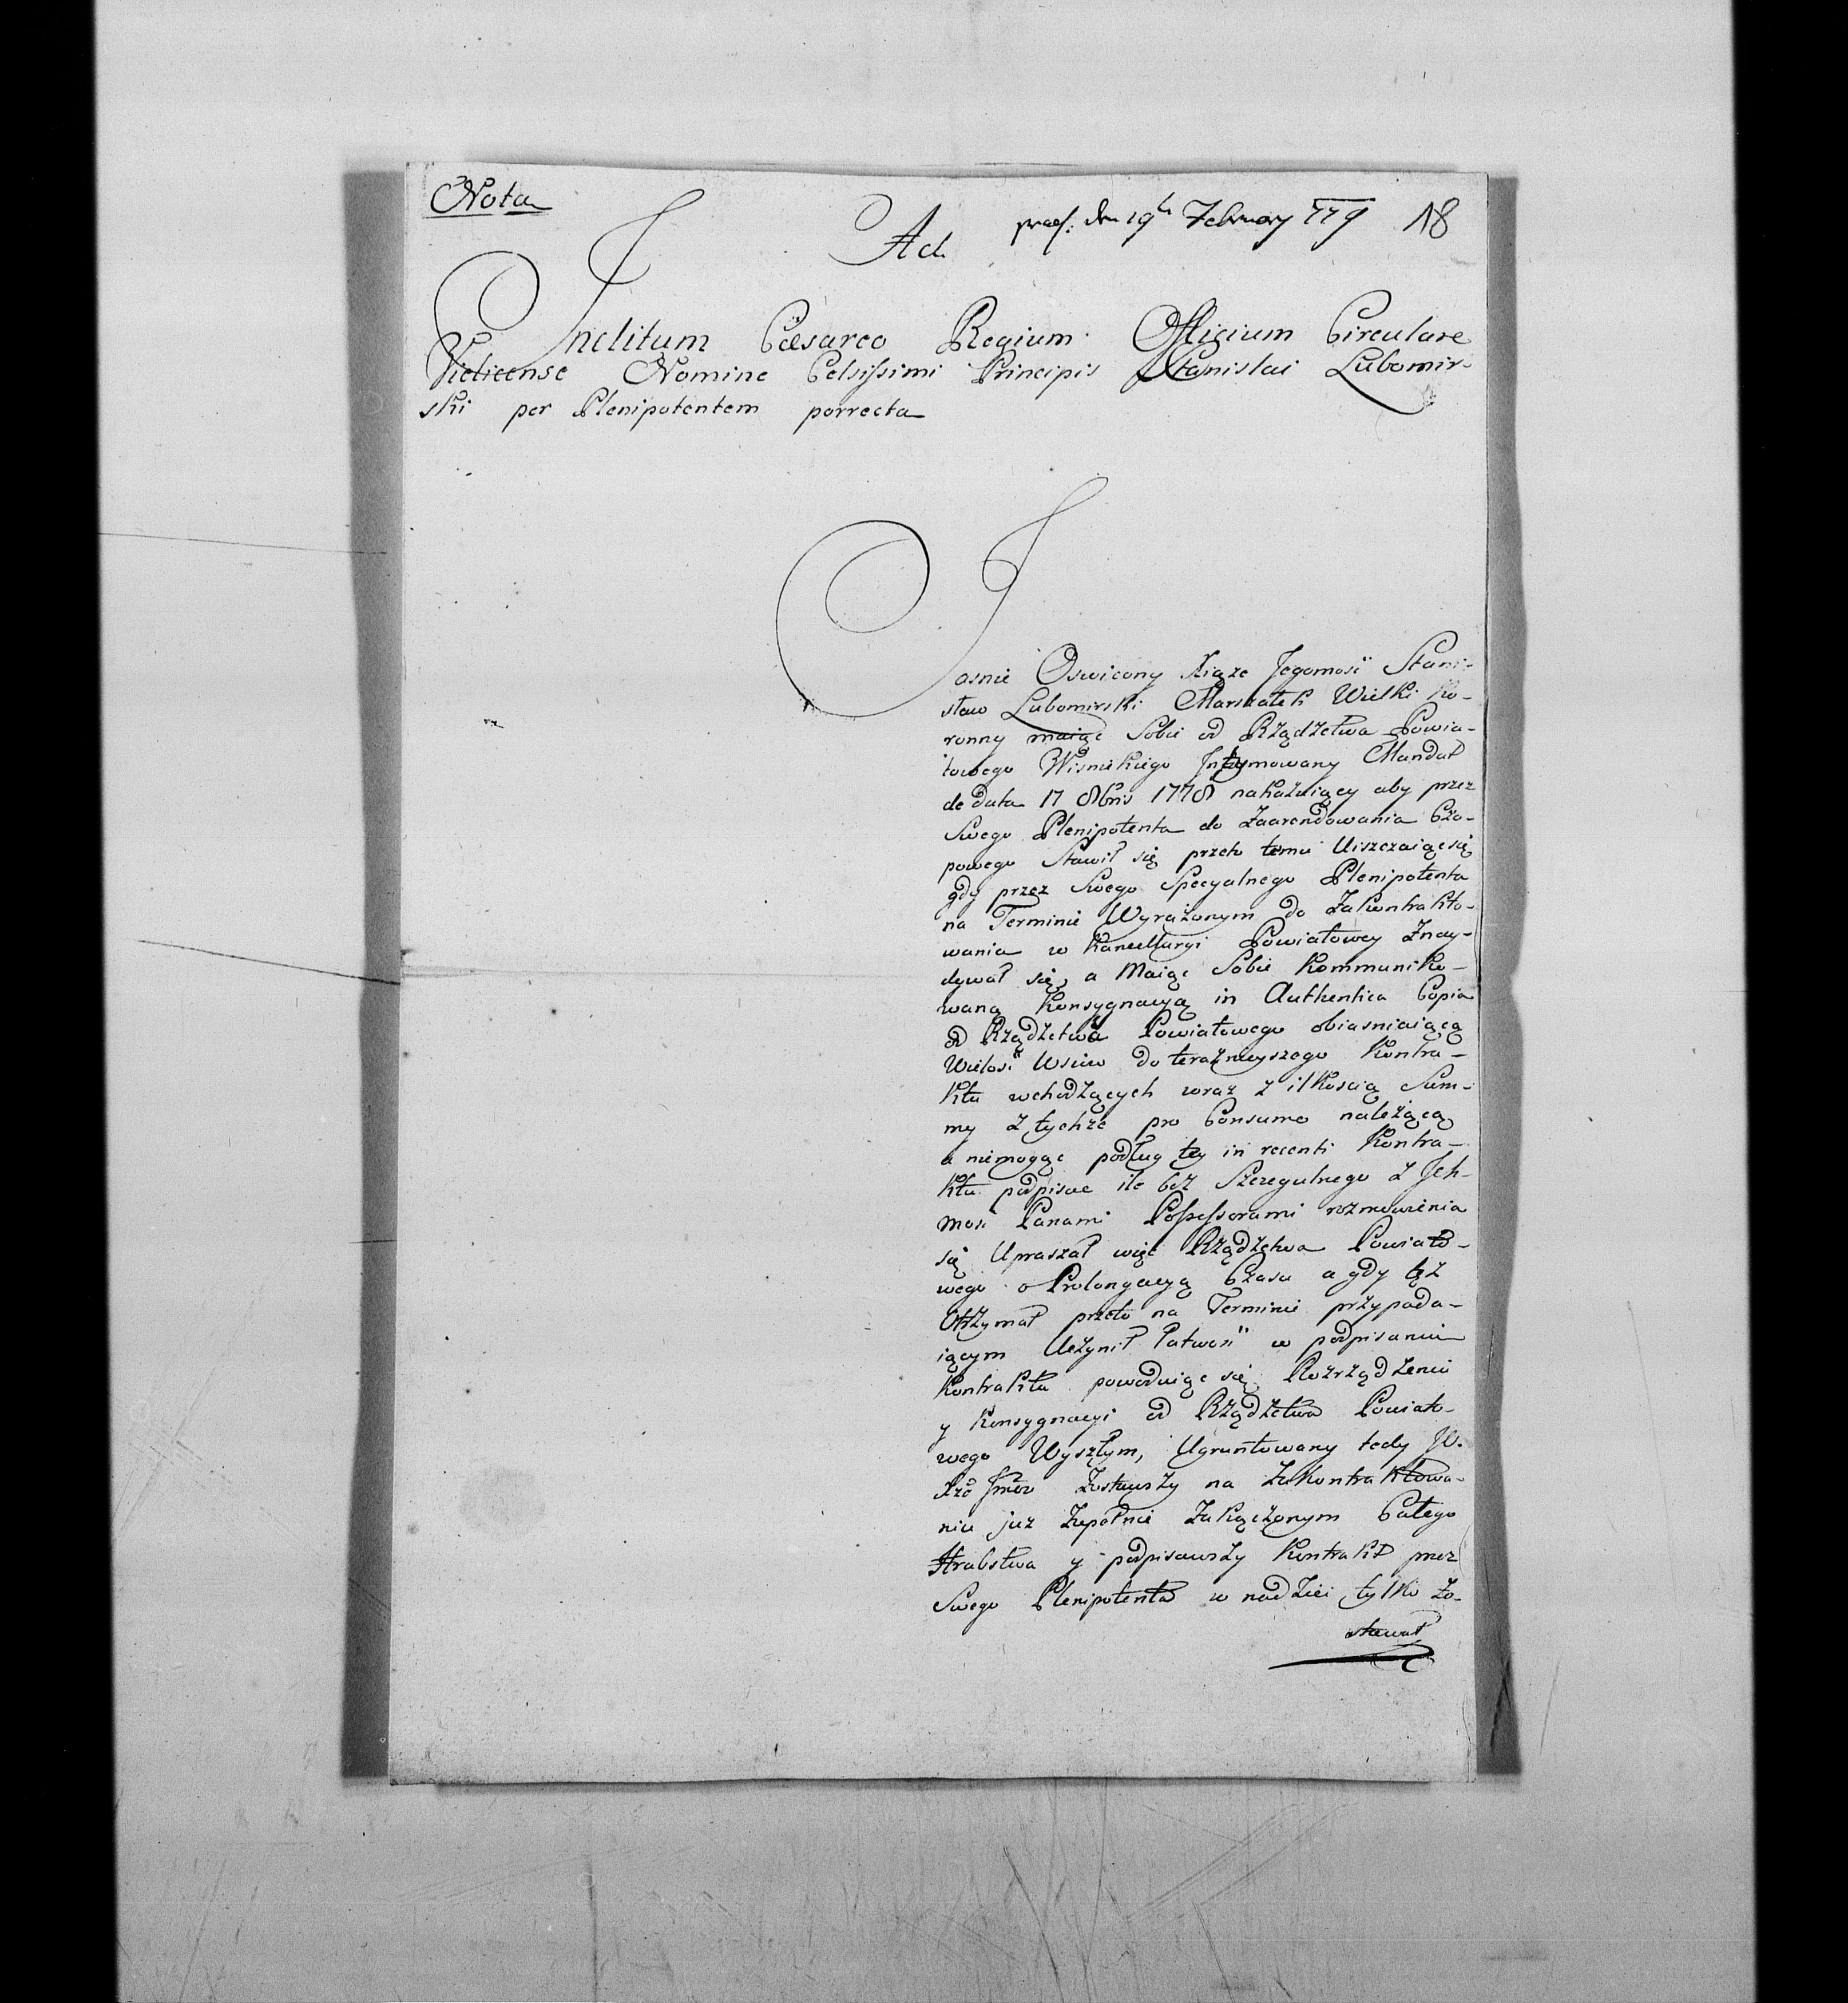 Nota
Ad
præs: den 19ten February 779 18
Inclitum Cæsareo Regium Officium Circulare
Vielicense Nomine Celsissimi Principis Stanislai Lubomir-
ski per Plenipotentem porrecta
Jasnie Oswiecony Xiąze Jegomosć Stani-
sław Lubomirski Marszałek Wielki Ko-
ronny maiąc Sobie od Rządzctwa Powia-
towego Wisnickiego Intymowany Mandat
de data 17 8bris 1778 nakazuiący aby przez
Swego Plenipotenta do Zaarendowania Czo-
powego Stawił się przeto temu Uiszczaiąc się
gdy przez Swego Specyalnego Plenipotenta
na Terminie Wyrażonym do Zakontrakto-
wania w Kancellaryi Powiatowey Znay-
dywał się, a Maiąc Sobie Kommuniko-
waną Konsygnacyą in Authentica Copia
od Rządzctwa Powiatowego obiasniaiącą
Wielosć Wsiów do teraznieyszego Kontra-
ktu wchodzących wraz z ilkoscią Sum-
my z tychze pro Consumo należącą
a niemogąc podług tey in recenti Kontra-
ktu podpisac ile bez Szczegulnego z Jch-
mosć Panami Possessorami rozmowienia
się Upraszał więc Rządzctwa Powiato-
wego o Prolongacyą Czasu a gdy tęż
Otrzymał przeto na Terminie przypada-
iącym Uczynił łatwosć w podpisaniu
Kontraktu powoduiąc się Rozrządzeniu
y Konsygnacyi od Rządzctwa Powiato-
wego Wyszłym, Ugruntowany tedy JO.
Xże Jmość Zostawszy na Zakontraktowa-
niu juz Zupełnie Zakączonym Całego
Hrabstwa y podpisawszy Kontrakt przez
Swego Plenipotenta w nadziei tylko zo-
stawał